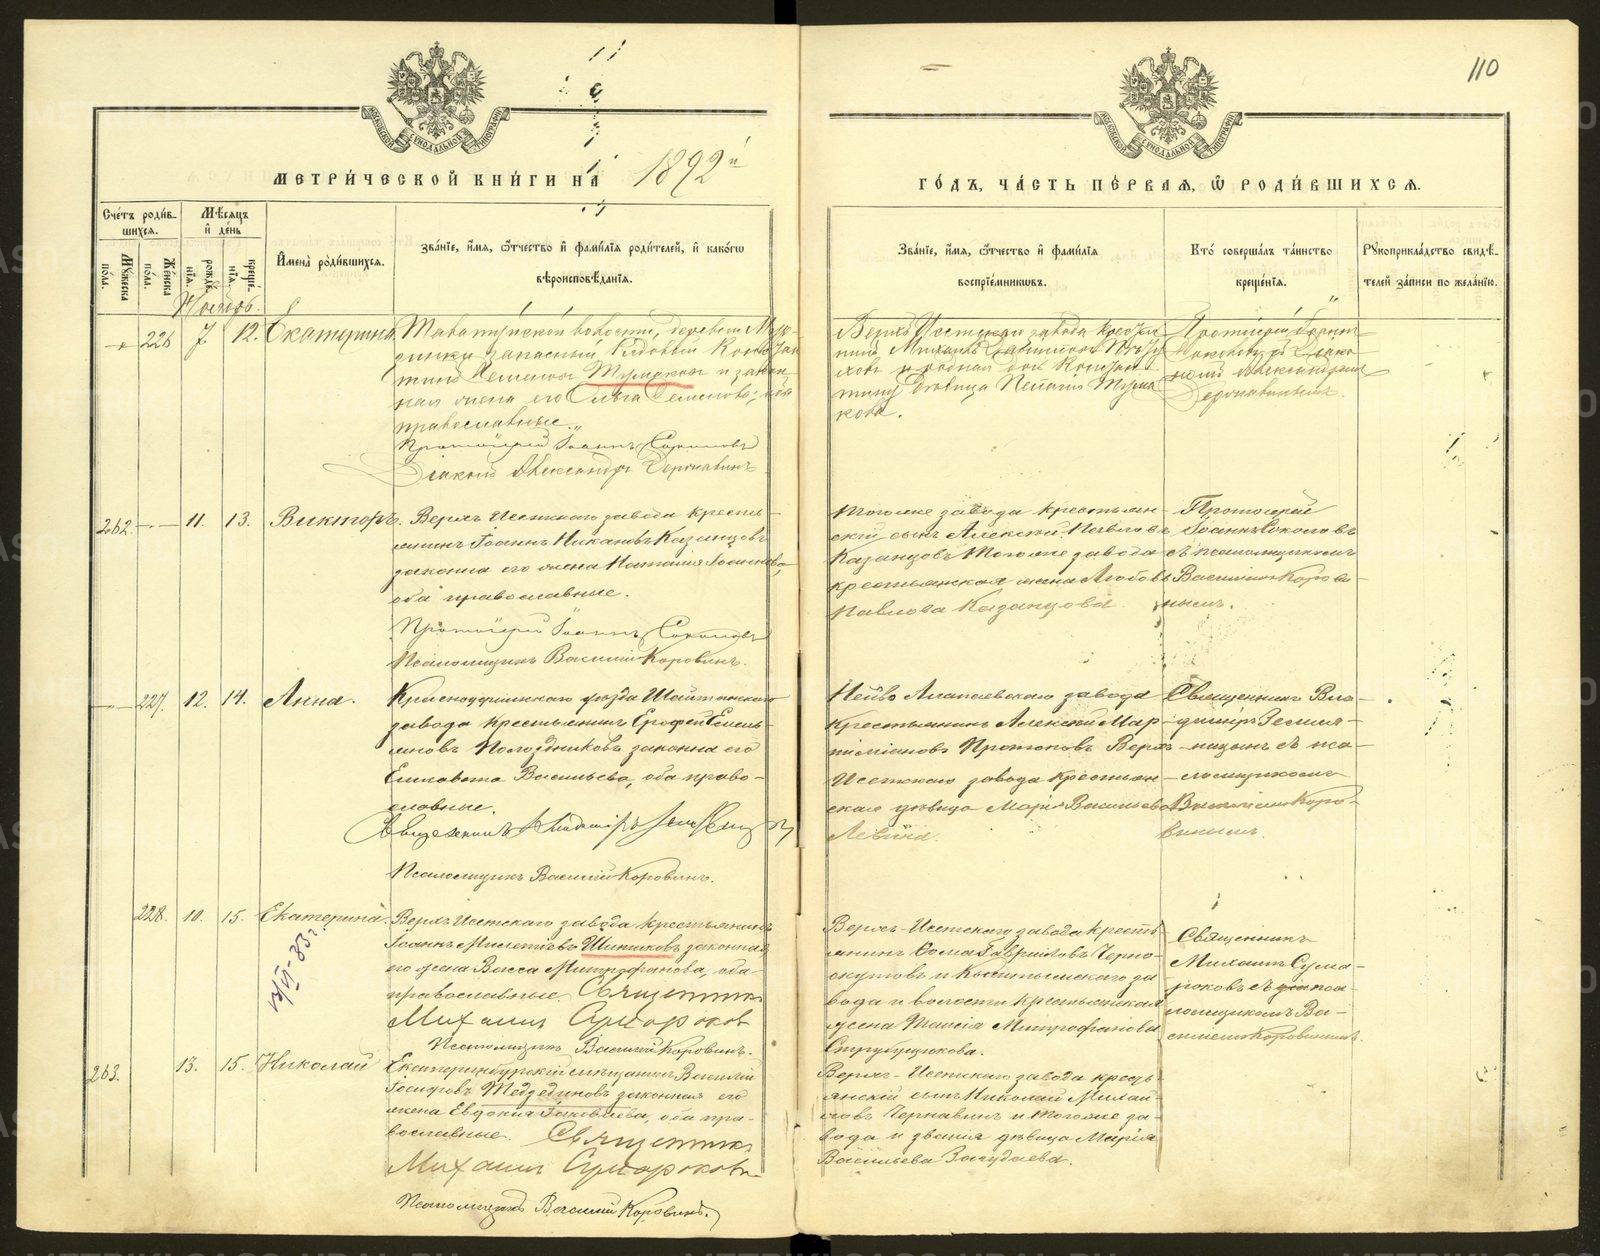 110
МОСКОВСКОЙ СѴНОДАЛЬНОЙ ТИПОГРАФІИ
МОСКОВСКОЙ СѴНОДАЛЬНОЙ ТИПОГРАФІИ
МЕТРИ́ЧЕСКОЙ КНИ́ГИ НА 1892й
ГО́ДЪ, ЧА́СТЬ ПЕ́РВАЯ, Ѽ РОДИ́ВШИХСЯ.
Сче́тъ роди́вшихся.
Му́жеска по́ла.
Же́нска по́ла.
Мѣ́сяцъ и҆ де́нь
рожде́нія.
креще́нія.
И҆мена̀ роди́вшихся.
Зва́нїе, и҆́мя, ѻ҆́тчество и҆ фами́лїя роди́телей, и҆ како́гѡ
вѣроисповѣ́данїя.
Зва́нїе, и҆́мя, ѻ҆́тчество и҆ фами́лїя
воспрїе́мникѡвъ.
Кто̀ соверша́лъ та́инство
креще́нїя.
Рꙋкоприкла́дство свидѣ́-
телей за́писи по жела́нїю.
Ноябрь.
226 7. 12. Екатерина
Таватуйской волости, деревни Мур-
зинки запасный рядовой Констан
тинъ Семеновъ Тумаковъ и закон
ная жена его Ольга Семенова, оба
православные.
Протоіерей Іоаннъ Соколовъ
Діаконъ Александръ Державинъ
Верхъ Исетскаго завода
Михаилъ
и родная дочь Констан
тину девица Пелагія Тума
кова.
Протоіерей Іоаннъ
Соколовъ съ Діако-
номъ Александромъ
Державинымъ.
262 11. 13. Викторъ.
Верхъ Исетскаго завода кресть-
янинъ Іоаннъ Никановъ Казанцовъ
законна его жена Наталія Іоаннова,
оба православные.
Протоіерей Іоаннъ Соколовъ
Псаломщикъ Василій Коровинъ.
Тогоже завода крестьян-
скій сынъ Алексѣй Павловъ
Казанцовъ Тогоже завода
крестьянская жена Любовь
Павлова Казанцова.
Протоіерей
Іоаннъ Соколовъ
съ псаломщикомъ
Василіемъ Корови-
нымъ.
227. 12. 14. Анна.
Красноуфимскаго уѣзда Шайтанскаго
завода крестьянинъ Ерофей Емель-
яновъ законна его
Елизавета Васильева, оба право-
славные.
Священникъ Владиміръ Земляницынъ
Псаломщикъ Василій Коровинъ.
Нейво Алапаевскаго завода
Крестьянинъ Алексѣй Мар-
тиміановъ Протоповъ Верхъ
Исетскаго завода крестьян-
ская дѣвица Марія Васильева
Левина.
Священникъ Вла-
диміръ Земля-
ницынъ съ пса-
ломщикомъ
Василіемъ Коро-
винымъ.
228. 10. 15. Екатерина
Верхъ Исетскаго завода крестьянинъ
Іоаннъ Милетіевъ Шитиковъ законная
его жена Васса Митрофанова, оба
православные. Священникъ
Михаилъ Сумароковъ
Псаломщикъ Василій Коровинъ.
Верхъ-Исетскаго завода кресть
янинъ Ѳома Гавриловъ Черно-
скутовъ и за
вода и волости крестьянская
жена Таисія Митрофанова
Священникъ
Михаилъ Сума-
роковъ съ пса-
ломщикомъ Ва-
силіемъ Коровинымъ.
263. 13. 15. Николай
Екатеринбургскій мѣщанинъ Василій
Іосифовъ законная его
жена Евдокія Іаковлева, оба пра-
вославные. Священникъ
Михаилъ Сумароковъ
Псаломщикъ Василій Коровинъ.
Верхъ-Исетскаго завода кресть-
янскій сынъ Николай Михаи-
ловъ Чернавинъ и тогоже за-
вода и званія дѣвица Марія
Васильева